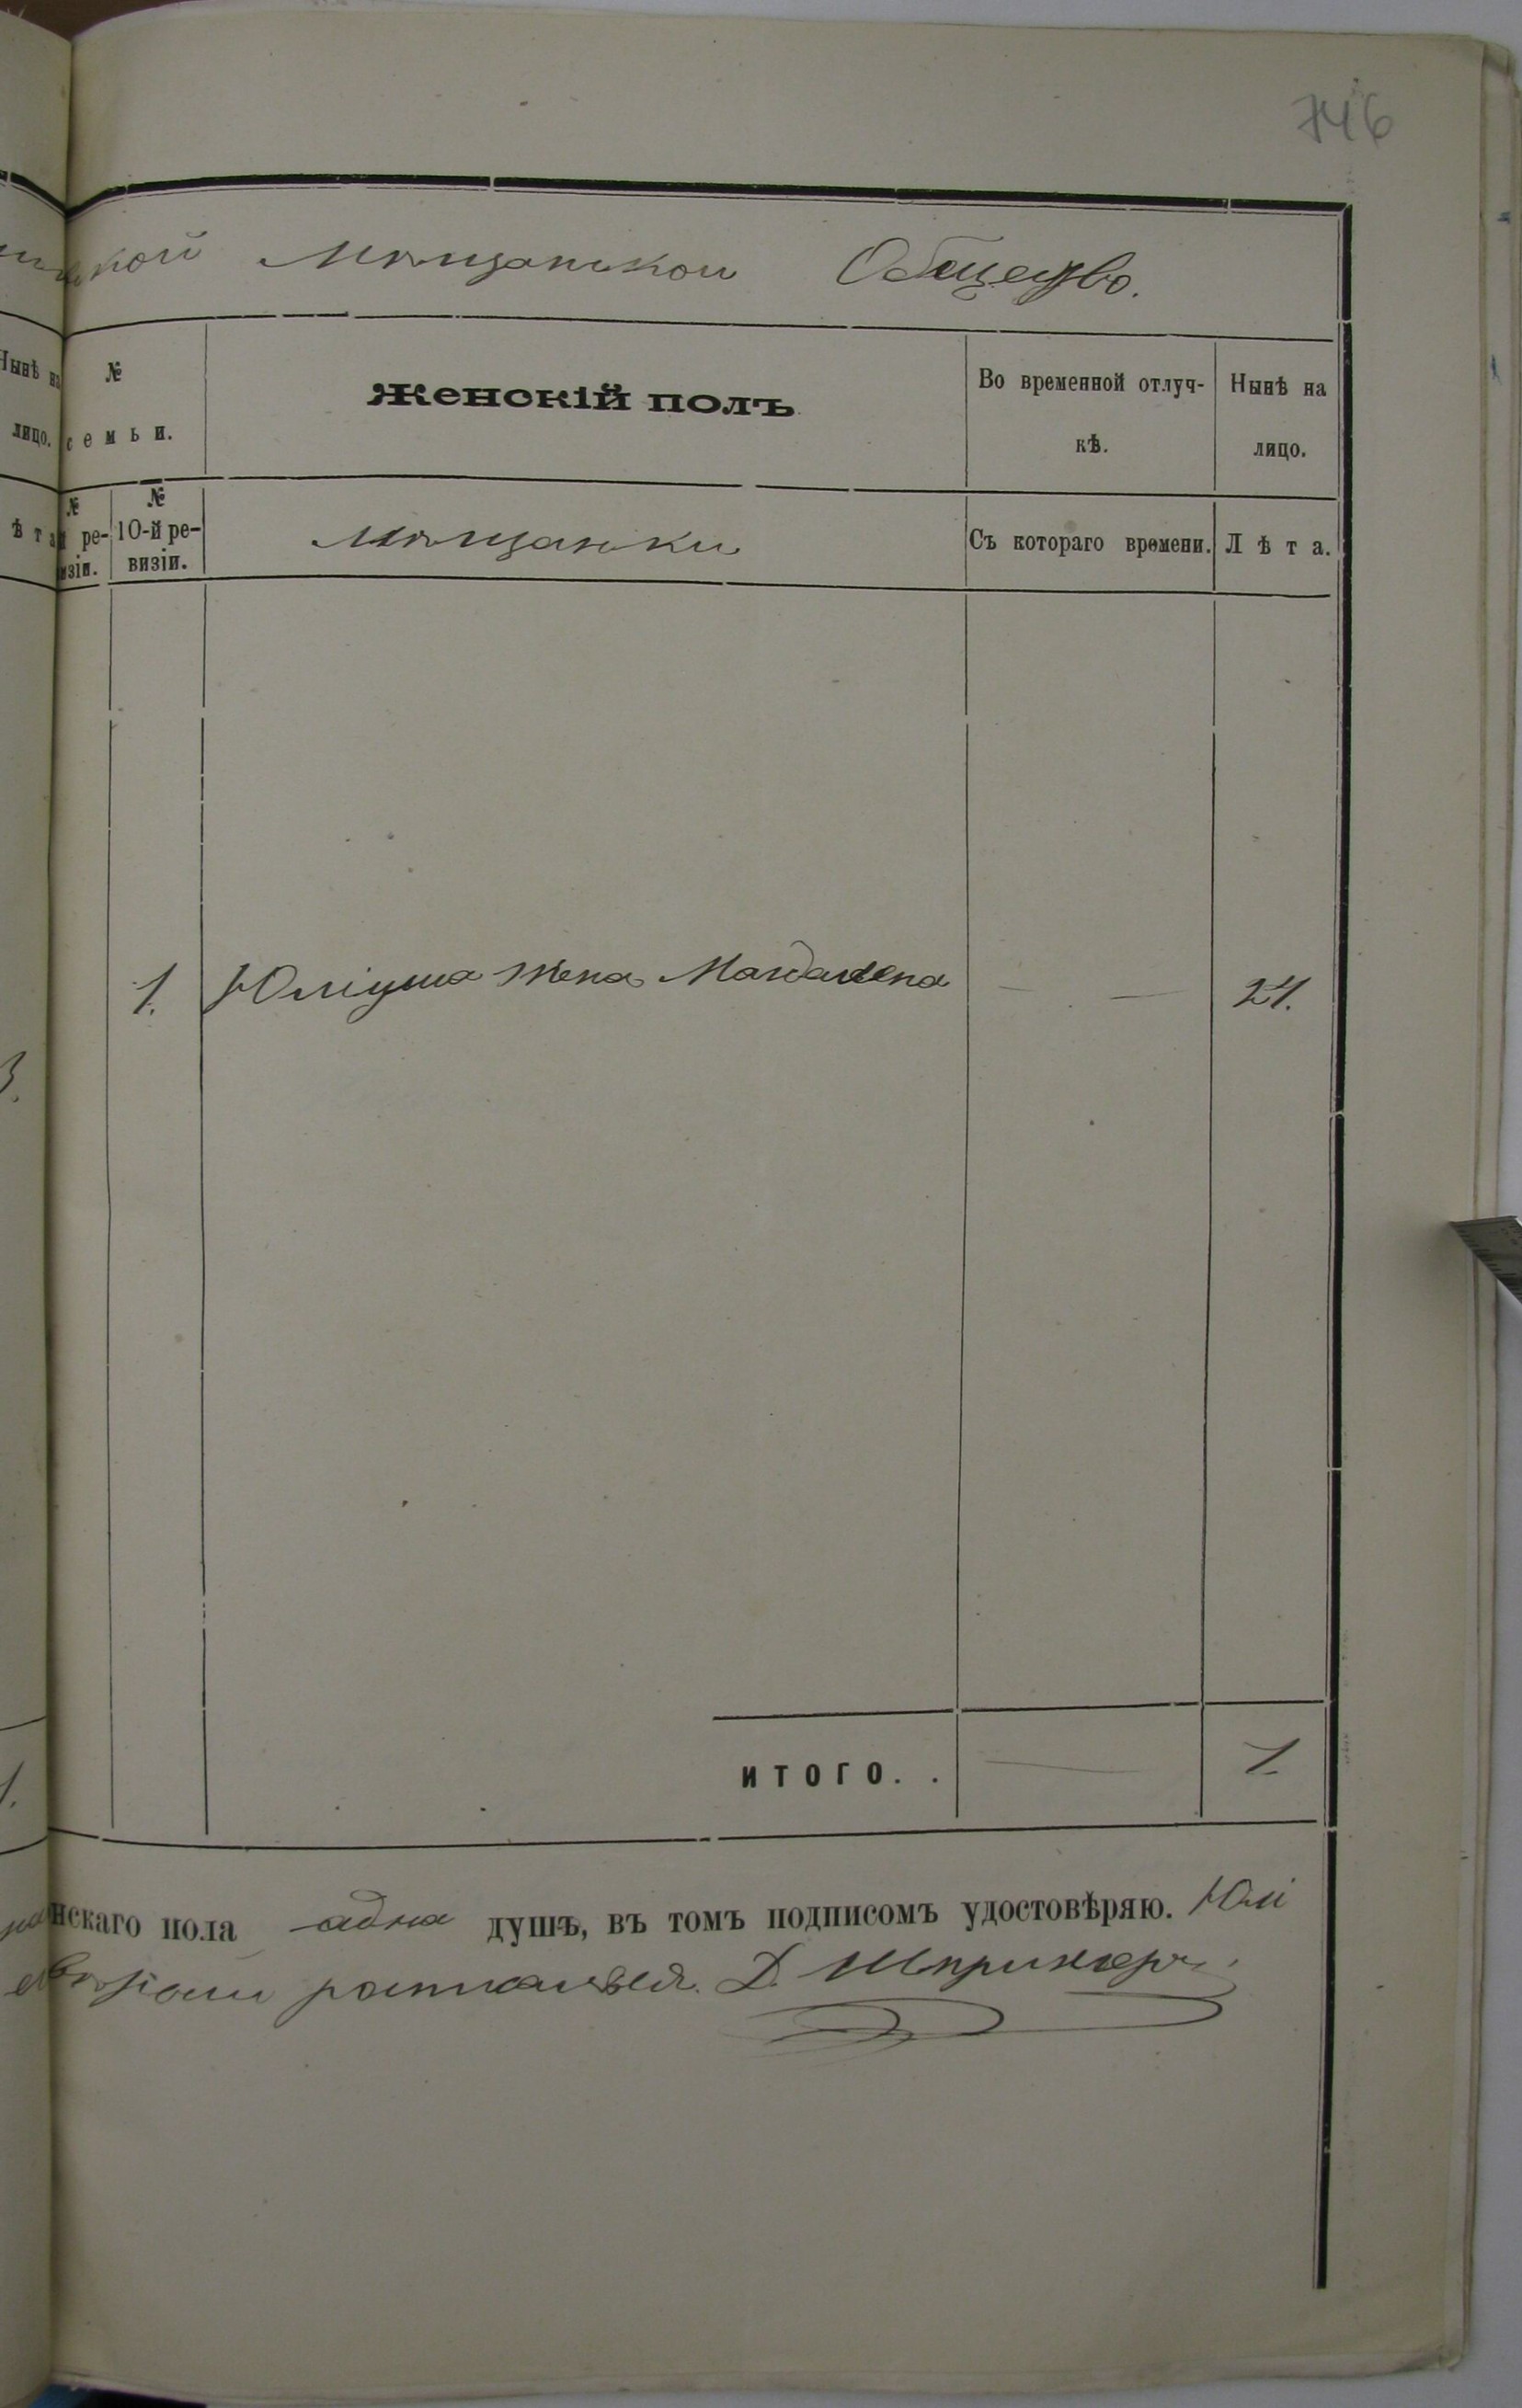 746
кой Мѣщанской Общество.
Нынѣ на
лицо.
№
семьи.
Женскій полъ
Во временной отлуч-
кѣ.
Нынѣ на
лицо.
ѣта
№
й ре-
візіи.
№
10-й ре-
визіи.
Мѣщанки
Съ котораго времени.
Лѣта.
1. Юліуша жена Магдалена — — 24.
3.
итого. . — 1
1.
нскаго пола адна душъ, въ томъ подписомъ удостовѣряю. Юлі
Д. Шпрингеръ